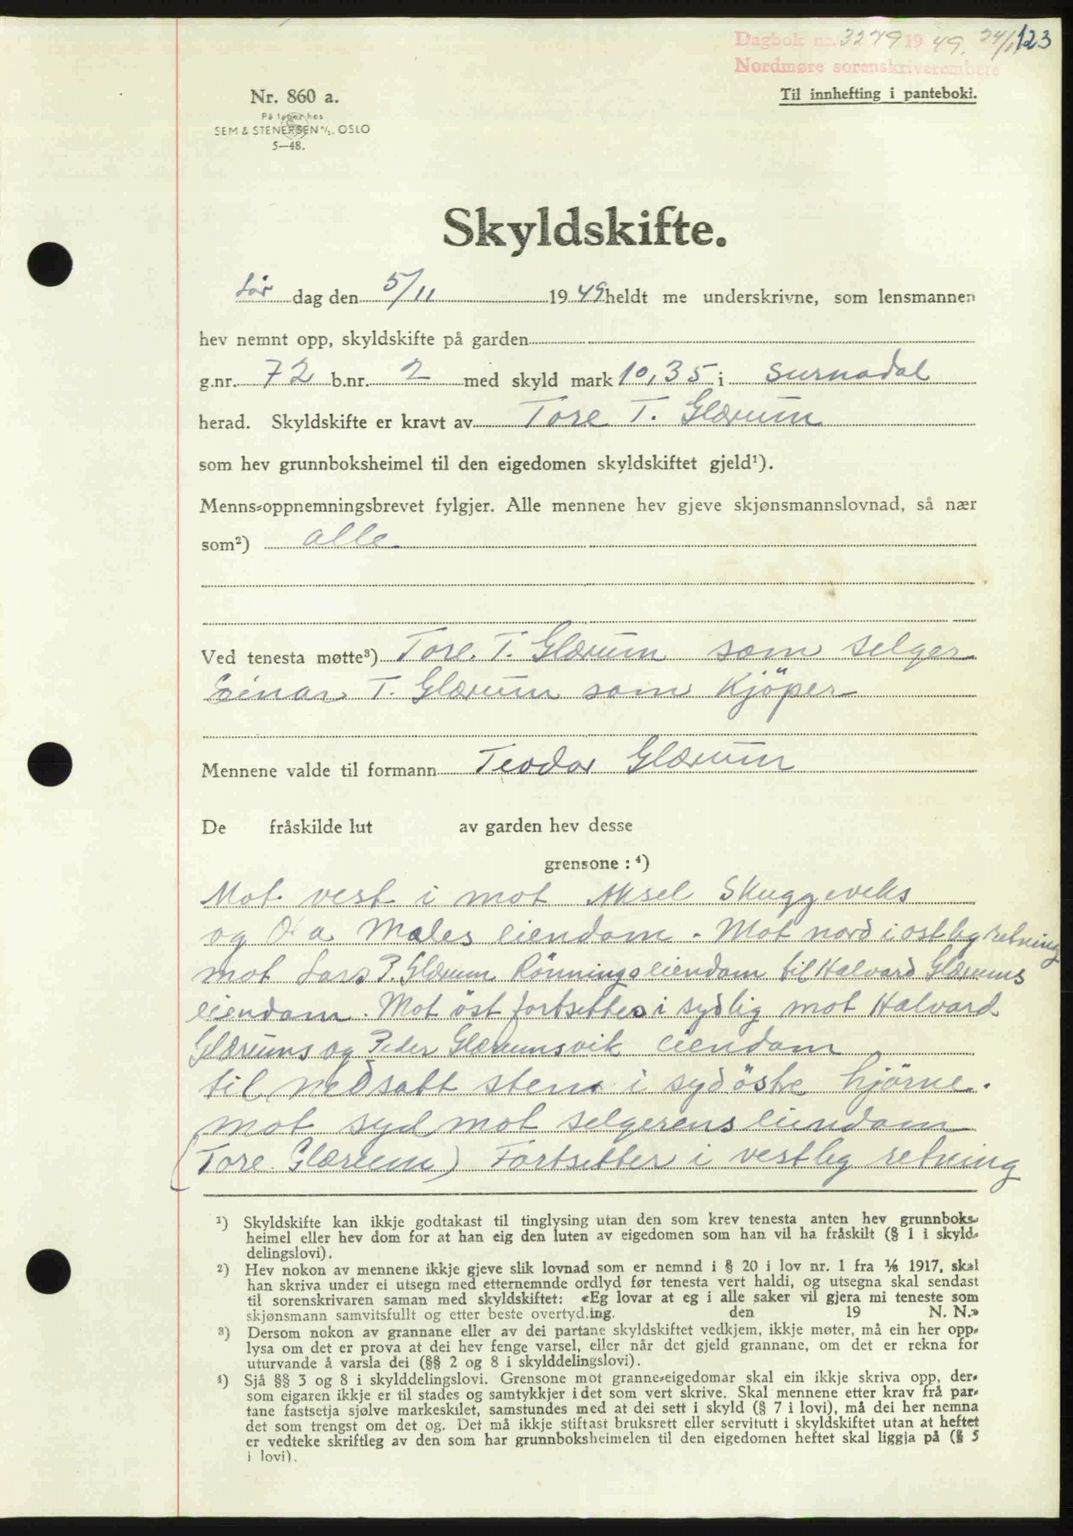 Dagbok nr. 3279 19 49. 24/11 123
Nordmøre sorenskriverembete
Nr. 860 a.
Til innhefting i panteboki.
På lager hos
SEM & STENERSEN A/S, OSLO
5—48.
Skyldskifte.
Lør dag den 5/11 1949 heldt me underskrivne, som lensmannen
hev nemnt opp, skyldskifte på garden
g.nr. 72 b.nr. 2 med skyld mark 10,35 i Surnadal
herad. Skyldskifte er kravt av Tore T. Glærum
som hev grunnboksheimel til den eigedomen skyldskiftet gjeld¹).
Menns-oppnemningsbrevet fylgjer. Alle mennene hev gjeve skjønsmannslovnad, så nær
som²) alle
Ved tenesta møtte³) Tore. T. Glærum som selger
Einar T. Glærum som Kjöper
Mennene valde til formann Teodor Glærum
De fråskilde lut av garden hev desse
grensone : ⁴)
Mot vest i mot Aksel Skuggeviks
og Ola Moles eiendom. Mot nord i ostlig retning
mot Lars P. Glærum Rönningseiendom til Halvard Glærums
eiendom. Mot öst fortsettes i sydlig mot Halvard
Glærums og Peder Glærumsvik eiendom
til nedsatt sten i sydöste hjörne.
mot syd mot selgerens eiendom
(Tore Glærum) Fortsetter i vestlig retning
¹) Skyldskifte kan ikkje godtakast til tinglysing utan den som krev tenesta anten hev grunnboks-
heimel eller hev dom for at han eig den luten av eigedomen som han vil ha fråskilt (§ 1 i skyld-
delingslovi).
²) Hev nokon av mennene ikkje gjeve slik lovnad som er nemnd i § 20 i lov nr. 1 fra 1/6 1917, skal
han skriva under ei utsegn med etternemnde ordlyd før tenesta vert haldi, og utsegna skal sendast
til sorenskrivaren saman med skyldskiftet: «Eg lovar at eg i alle saker vil gjera mi teneste som
skjønsmann samvitsfullt og etter beste overtyding. den 19 N. N.»
³) Dersom nokon av grannane eller av dei partane skyldskiftet vedkjem, ikkje møter, må ein her opp-
lysa om det er prova at dei hev fenge varsel, eller når det gjeld grannane, om det er rekna for
uturvande å varsla dei (§§ 2 og 8 i skylddelingslovi).
⁴) Sjå §§ 3 og 8 i skylddelingslovi. Grensone mot granne-eigedomar skal ein ikkje skriva opp, der-
som eigaren ikkje er til stades og samtykkjer i det som vert skrive. Skal mennene etter krav frå par-
tane fastsetja sjølve markeskilet, samstundes med at dei sett i skyld (§ 7 i lovi), må dei her nemna
det som trengst om det og. Det må ikkje stiftast bruksrett eller servitutt i skyldskiftet utan at heftet
er vedteke skriftleg av den som har grunnboksheimelen til den eigedomen heftet skal liggja på (§ 5
i lovi).